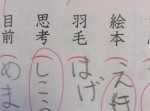 絵本
えほ
羽毛
はげ
思考
しこ
目前
めま